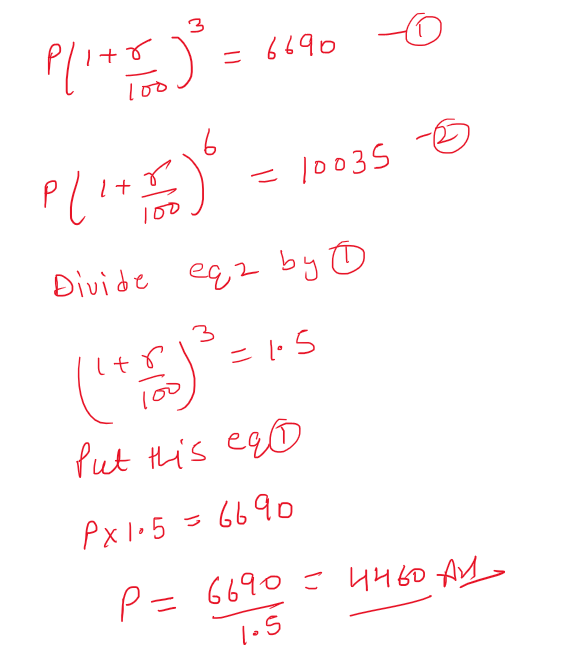 P(1+r/100)^3 = 6690 —①
P(1+r/100)^6 = 10035 —②
Divide eq 2 by ①
(1+r/100)^3 = 1.5
Put this eq①
P×1.5 = 6690
P = 6690/1.5 = 4460 Ans